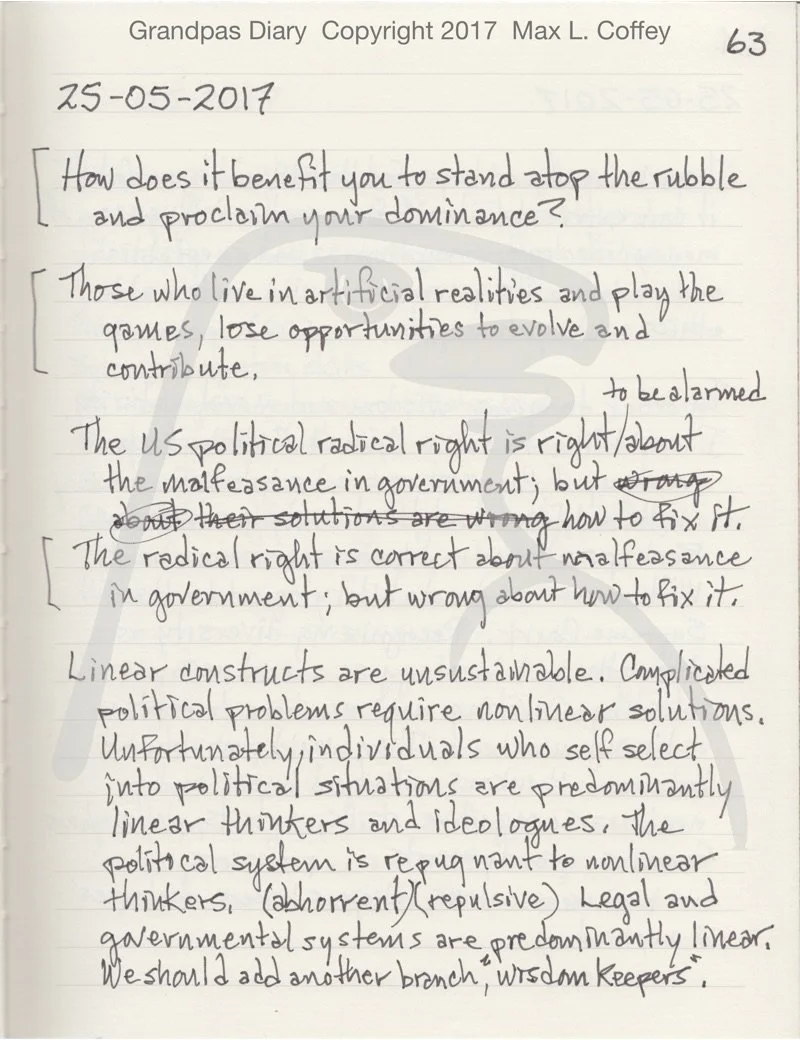 Grandpas Diary Copyright 2017 Max L. Coffey
63
25-05-2017
How does it benefit you to stand atop the rubble
and proclaim your dominance?
Those who live in artificial realities and play the
games, lose opportunities to evolve and
contribute.
to be alarmed
The US political radical right is right/about
the malfeasance in government; but wrong
about their solutions are wrong how to fix it.
The radical right is correct about malfeasance
in government; but wrong about how to fix it.
Linear constructs are unsustainable. Complicated
political problems require nonlinear solutions.
Unfortunately, individuals who self select
into political situations are predominantly
linear thinkers and ideologues. The
political system is repugnant to nonlinear
thinkers. (abhorrent)(repulsive) Legal and
governmental systems are predominantly linear.
We should add another branch, "wisdom keepers".